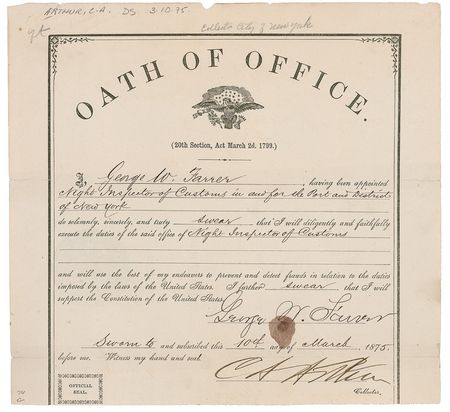 ARTHUR, C.A. DS 3.10.75.
Collector City of New York
OATH OF OFFICE.
(20th Section, Act March 2d. 1799.)
I, George W. Farrer having been appointed
Night Inspector of Customs in and for the Port and District
of New York
do solemnly, sincerely, and truly swear that I will diligently and faithfully
execute the duties of the said office of Night Inspector of Customs
and will use the best of my endeavors to prevent and detect frauds in relation to the duties
imposed by the laws of the United States. I further swear that I will
support the Constitution of the United States.
George W. Farrer
Sworn to and subscribed this 10th day of March 1875
before me. Witness my hand and seal.
C A Arthur
Collector.
OFFICIAL
SEAL.